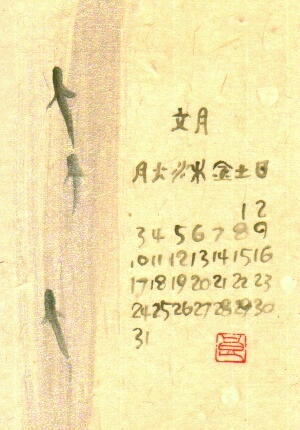 文月
月火水木金土日
1 2
3 4 5 6 7 8 9
10 11 12 13 14 15 16
17 18 19 20 21 22 23
24 25 26 27 28 29 30
31